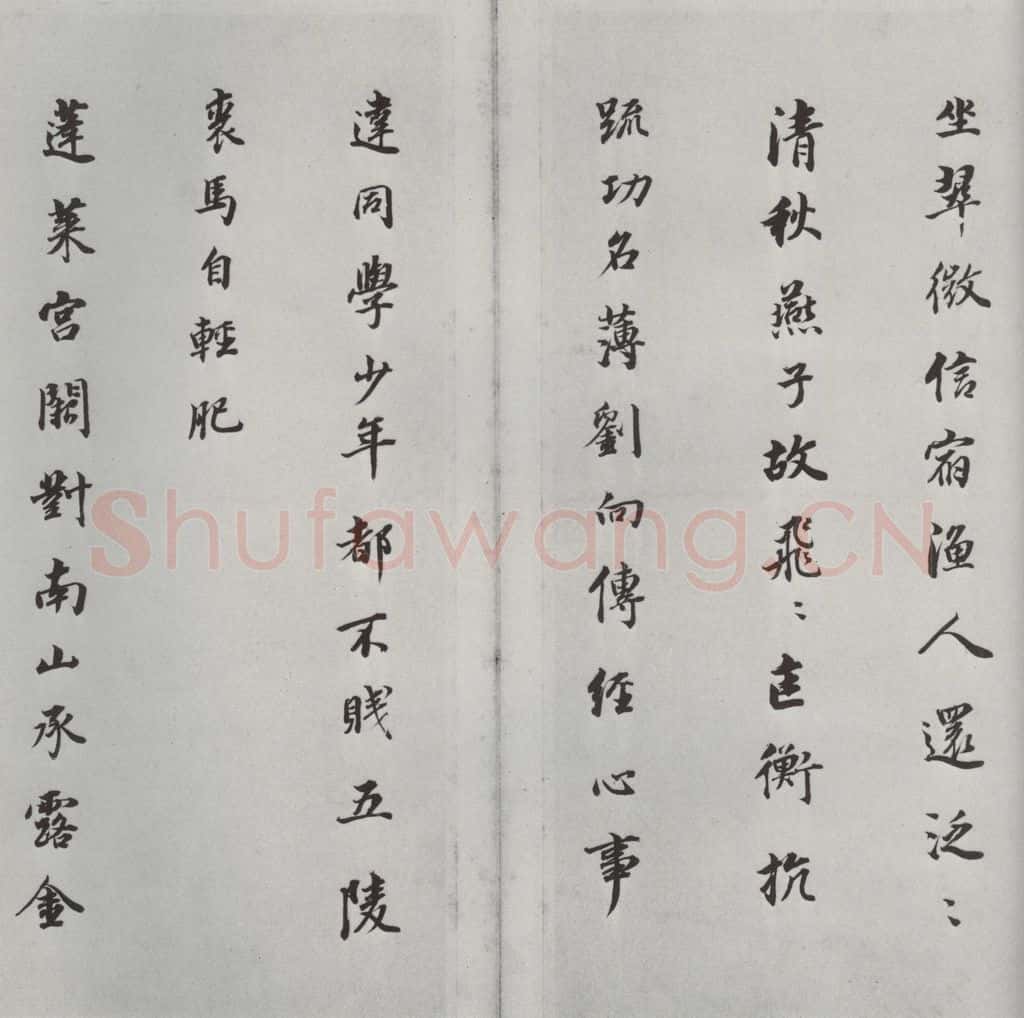 坐翠微信宿漁人還泛〻
清秋燕子故飛〻匡衡抗
疏功名薄劉向傳經心事
達同學少年都不賤五陵
裘馬自輕肥
蓬萊宮闕對南山承露金
Shufawang.CN